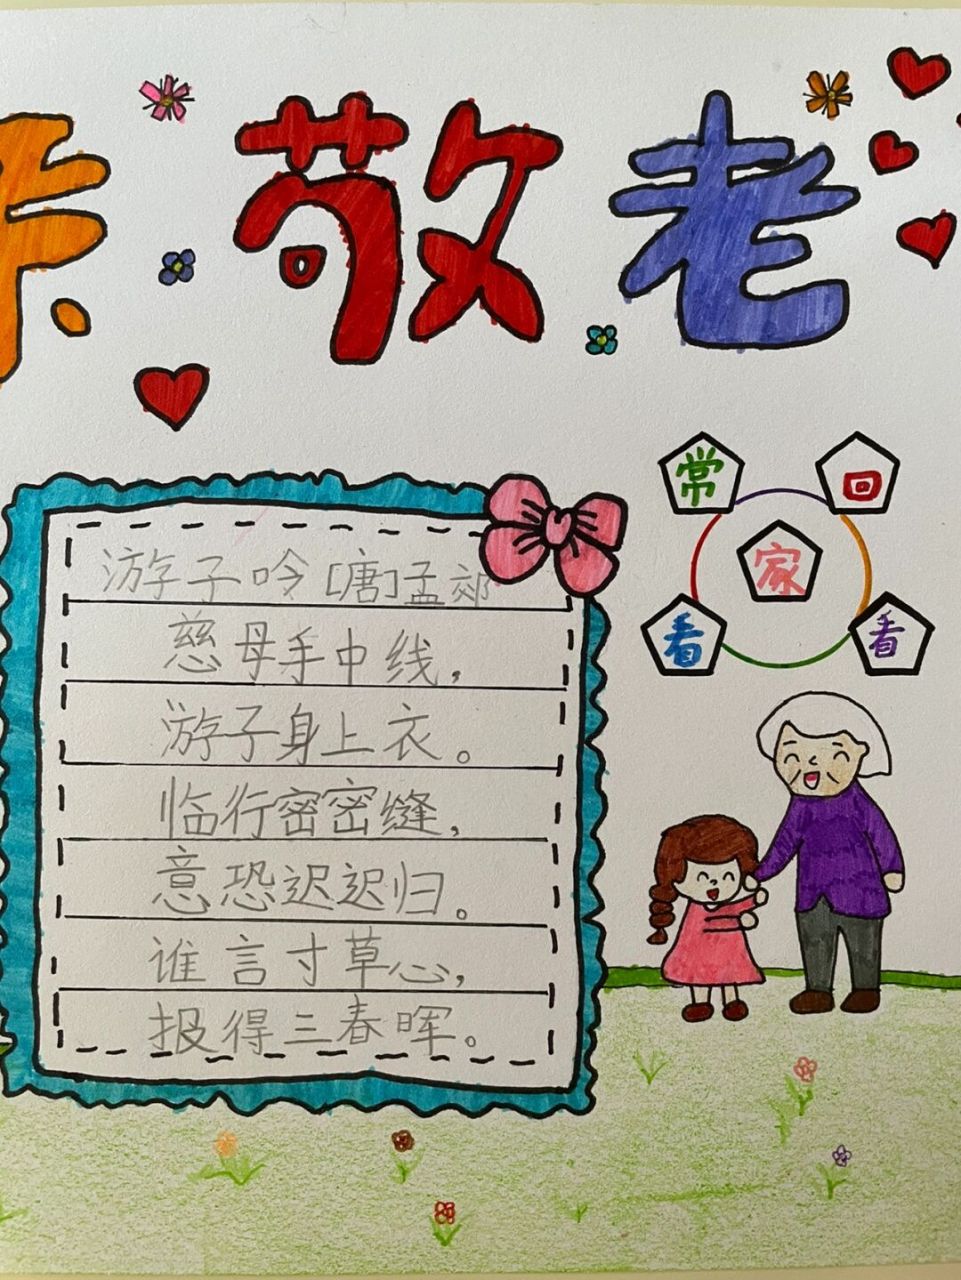 敬老
常回
家
看看
游子吟[唐]孟郊
慈母手中线，
游子身上衣。
临行密密缝，
意恐迟迟归。
谁言寸草心，
报得三春晖。